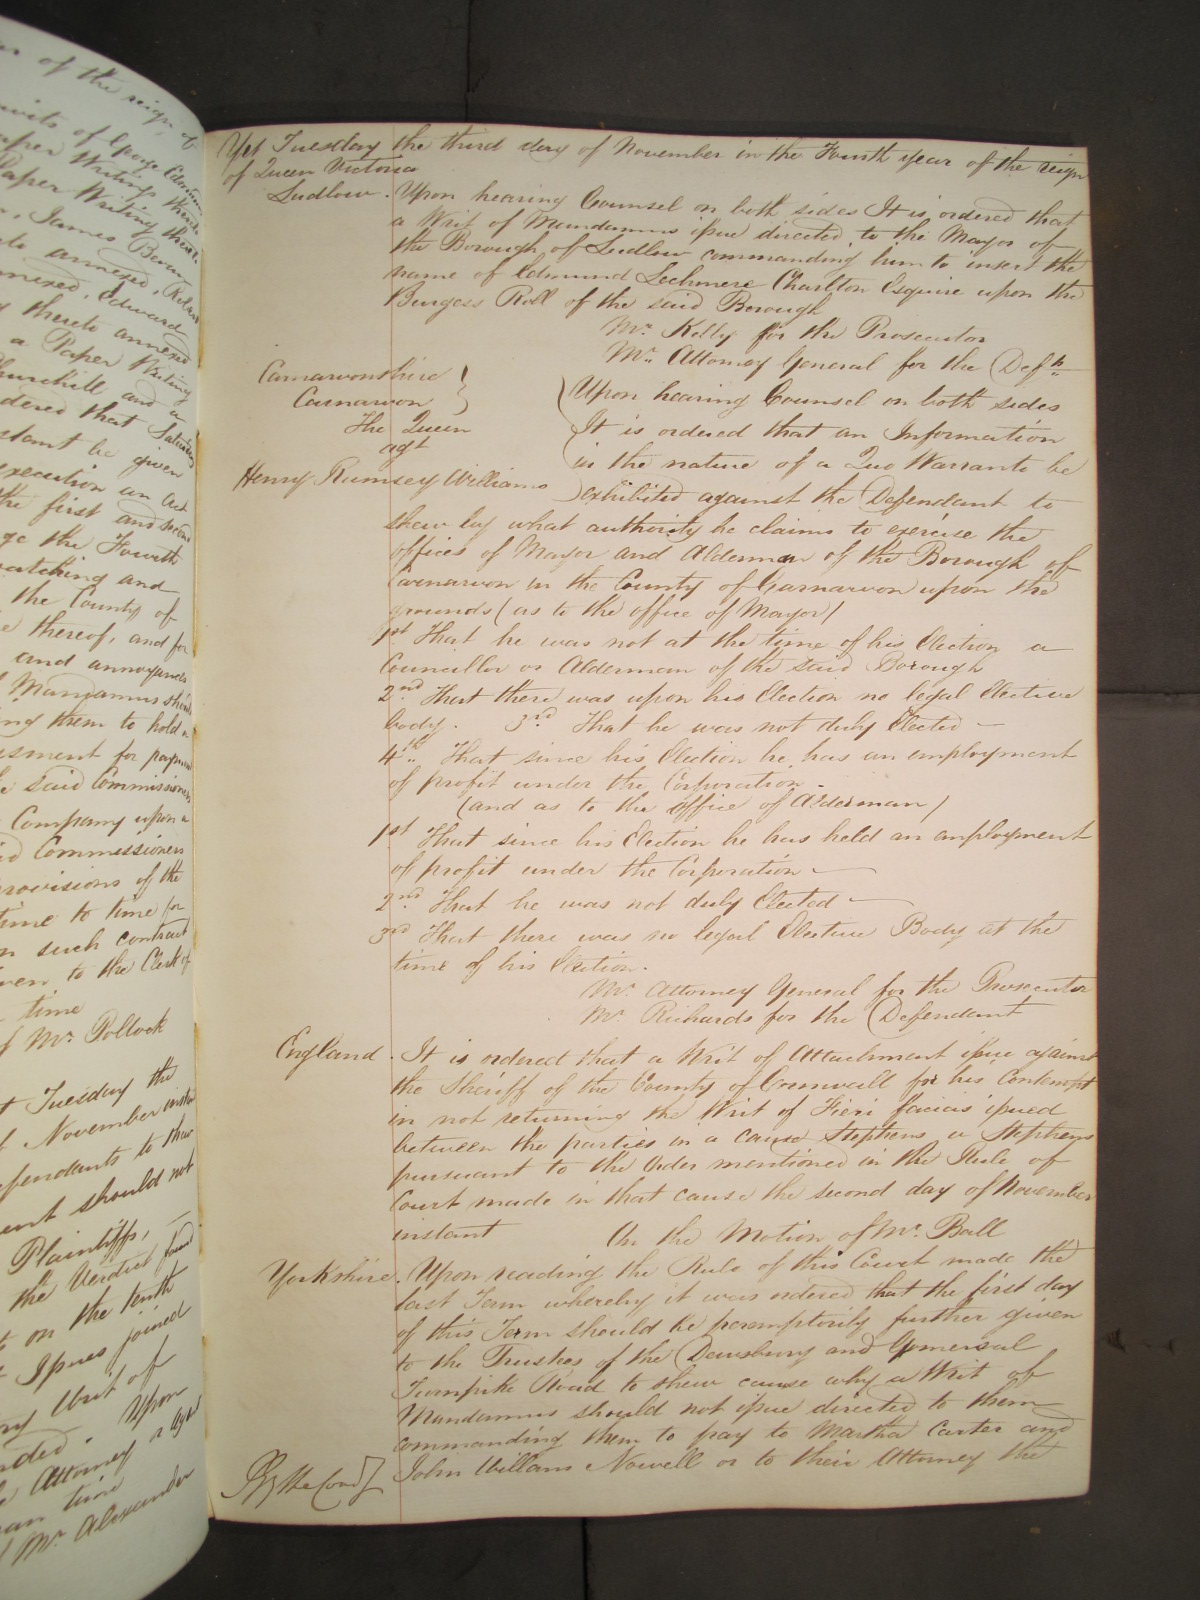 er of the reign of
wits of George Edmun
aper Writings there
Paper Writing there
James Bevan
to annexed, Richard
nnexed, Edward
g thereto annexed
a Paper Writing
Churchill and a
dered that Saturday
stant be given
execution an Act
the first and second
ge the Fourth
watching and
the County of
e thereof, and for
and annoyances
f Mandamus should
ing them to hold a
ssment for payment
e said Commissioners
Company upon a
id Commissioners
provisions of the
time to time for
n such contract
ven to the Clerk of
time
f Mr. Pollock
t Tuesday the
f November instant
efendants to shew
ent should not
Plaintiffs,
the Verdict found
t on the tenth
Issues joined
ry Writ of
nded. Upon
e Attorney
an time
Mr. Alexander
Yet Tuesday the third day of November in the Fourth year of the reign
of Queen Victoria
Ludlow. Upon hearing Counsel on both sides It is ordered that
a Writ of Mandamus issue directed to the Mayor of
the Borough of Ludlow commanding him to insert the
name of Edmund Lechmere Charlton Esquire upon the
Burgess Roll of the said Borough
Mr. Kelly for the Prosecutor
Mr. Attorney General for the Defts.
Carnarvonshire
Carnarvon
The Queen
agt
Henry Rumsey Williams
Upon hearing Counsel on both sides
It is ordered that an Information
in the nature of a Quo Warranto be
exhibited against the Defendant to
shew by what authority he claims to exercise the
offices of Mayor and Alderman of the Borough of
Carnarvon in the County of Carnarvon upon the
grounds (as to the office of Mayor)
1st That he was not at the time of his Election a
Councillor or Alderman of the said Borough
2nd That there was upon his Election no legal Elective
body. 3rd That he was not duly Elected —
4th That since his Election he has an employment
of profit under the Corporation.
(and as to the office of Alderman)
1st That since his Election he has held an employment
of profit under the Corporation —
2nd That he was not duly Elected —
3rd That there was no legal Elective Body at the
time of his Election.
Mr. Attorney General for the Prosecutor
Mr. Richards for the Defendant
England. It is ordered that a Writ of Attachment issue against
the Sheriff of the County of Cornwall for his Contempt
in not returning the Writ of Fieri facias issued
between the parties in a cause Stephens v Stephens
pursuant to the Order mentioned in the Rule of
Court made in that cause the second day of November
instant On the Motion of Mr. Ball
Yorkshire. Upon reading the Rule of this Court made the
last Term whereby it was ordered that the first day
of this Term should be peremptorily further given
to the Trustees of the Dewsbury and Gomersal
Turnpike Road to shew cause why a Writ of
Mandamus should not issue directed to them
commanding them to pay to Martha Carter and
John Willans Nowell or to their Attorney the
By the Court